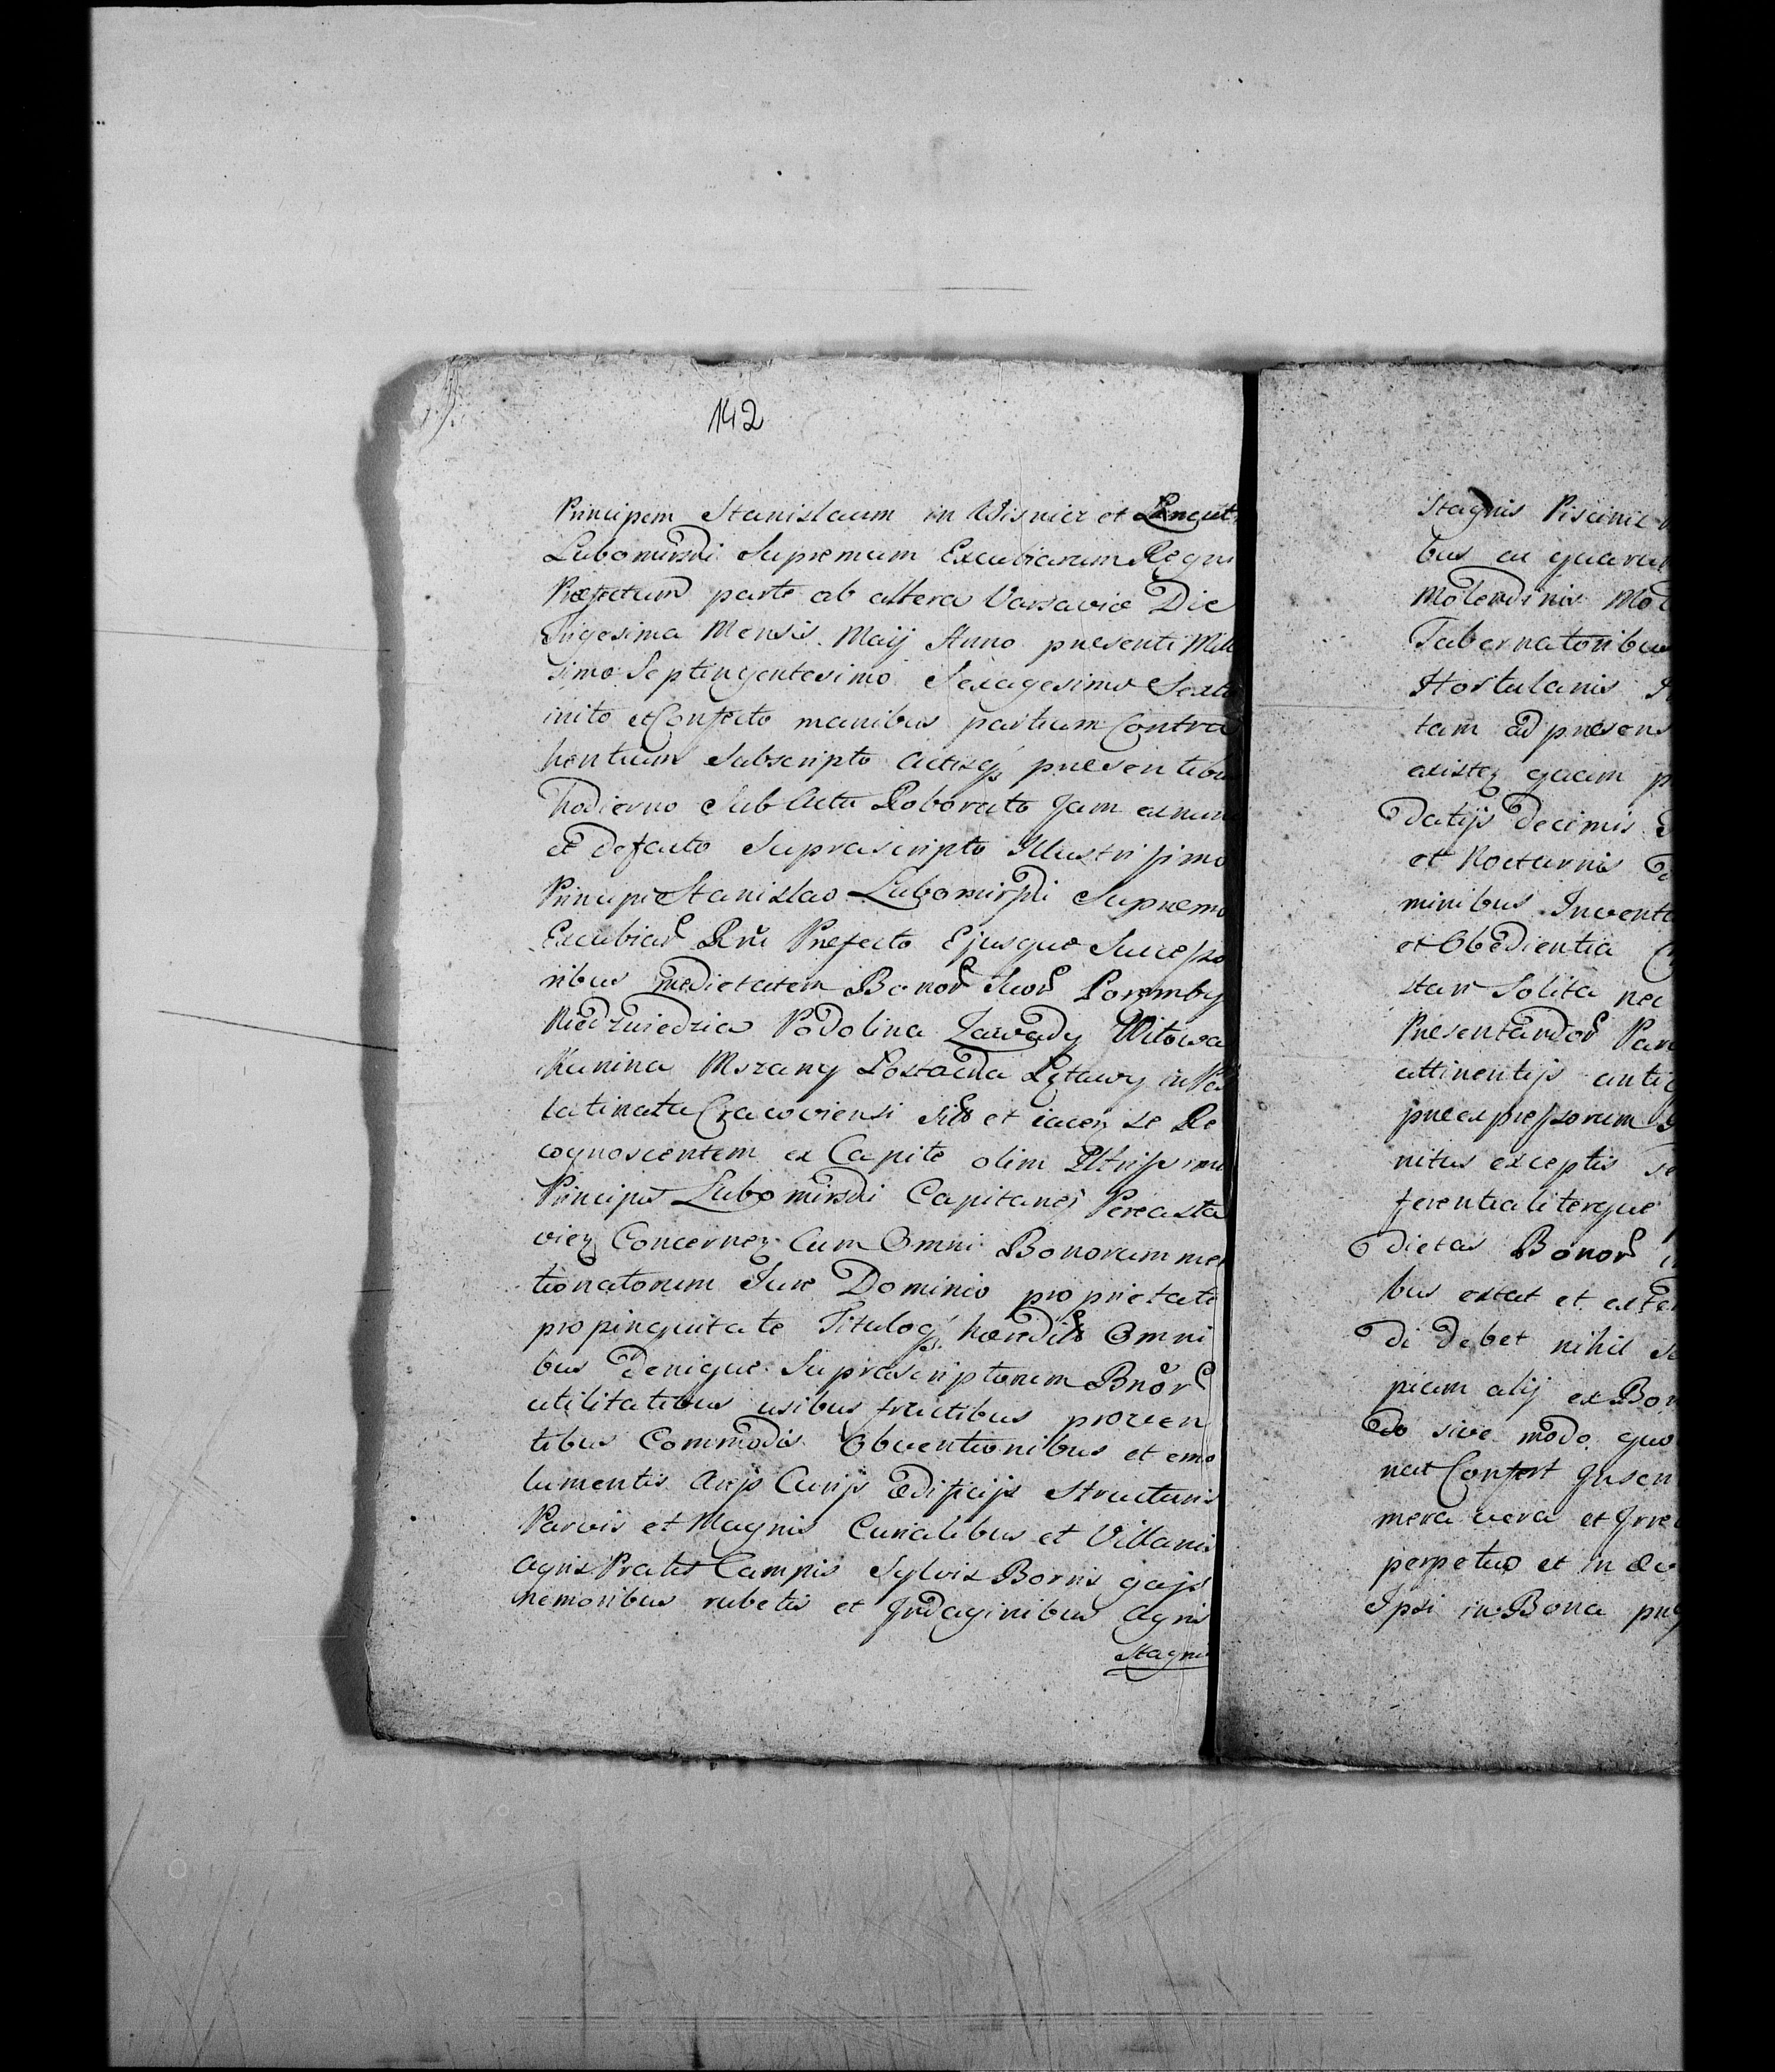 142
Principem Stanislaum in Wisnicz et Lancut
Lubomirski Supremum Excubiarum Regni
Præfectum parte ab altera Varsaviæ Die
Trigesima Mensis Maij Anno præsenti Mille
simo Septingentesimo Sexagesimo Sexto
inito et Confecto manibus partium Contra
hentium Subscripto actisq, præsentibus
hodierno Sub Actu Roborato Jam exnunc
et defacto Suprascripto Illustrissimo
Principi Stanislao Lubomirski Supremo
Excubiar Rni Præfecto Ejusque Successo
ribus medietatem Bonor Suor Poremby
Niedzwiedzia Podolina Zawady Witowa
Kanina Mszany Łostowka Łętowy in Pa
latinatu Cracoviensi sit et iacen se Re
cognoscentem ex Capite olim Illtrissimi
Principis Lubomirski Capitanej Pereasla
vien Concernen Cum Omni Bonorum men
tionatorum Jure Dominio proprietate
propinquitate Tituloq, hæredit Omni
bus denique Suprascriptorum Bnor
utilitatibus usibus fructibus proven
tibus Commodis Obventionibus et emo
lumentis Arijs Curijs Ædificijs Structuris
Parvis et Magnis Curialibus et Villanis
Agris Pratis Campis Sylvis Borris gajs
nemoribus rubetis et Indaginibus Agris
Stagnis
Stagnis Piscinis
bus ac quarum
Molendinis Mol
Tabernatoribus
Hortulanis
tam ad præsens
existen quam p
datijs decimis
et Nocturnis
minibus Invent
et Obedientia
stari Solita nec
Præsentandor Par
attinentijs anti
præexpressorum
nitus exceptis
ferentialiterque
dietas Bonor
bus extat et exte
di debet nihil
picum alij ex Bon
do sive modo quo
nent Confert Insen
mera vera et Irre
perpetuo et in æv
Ipsi in Bona